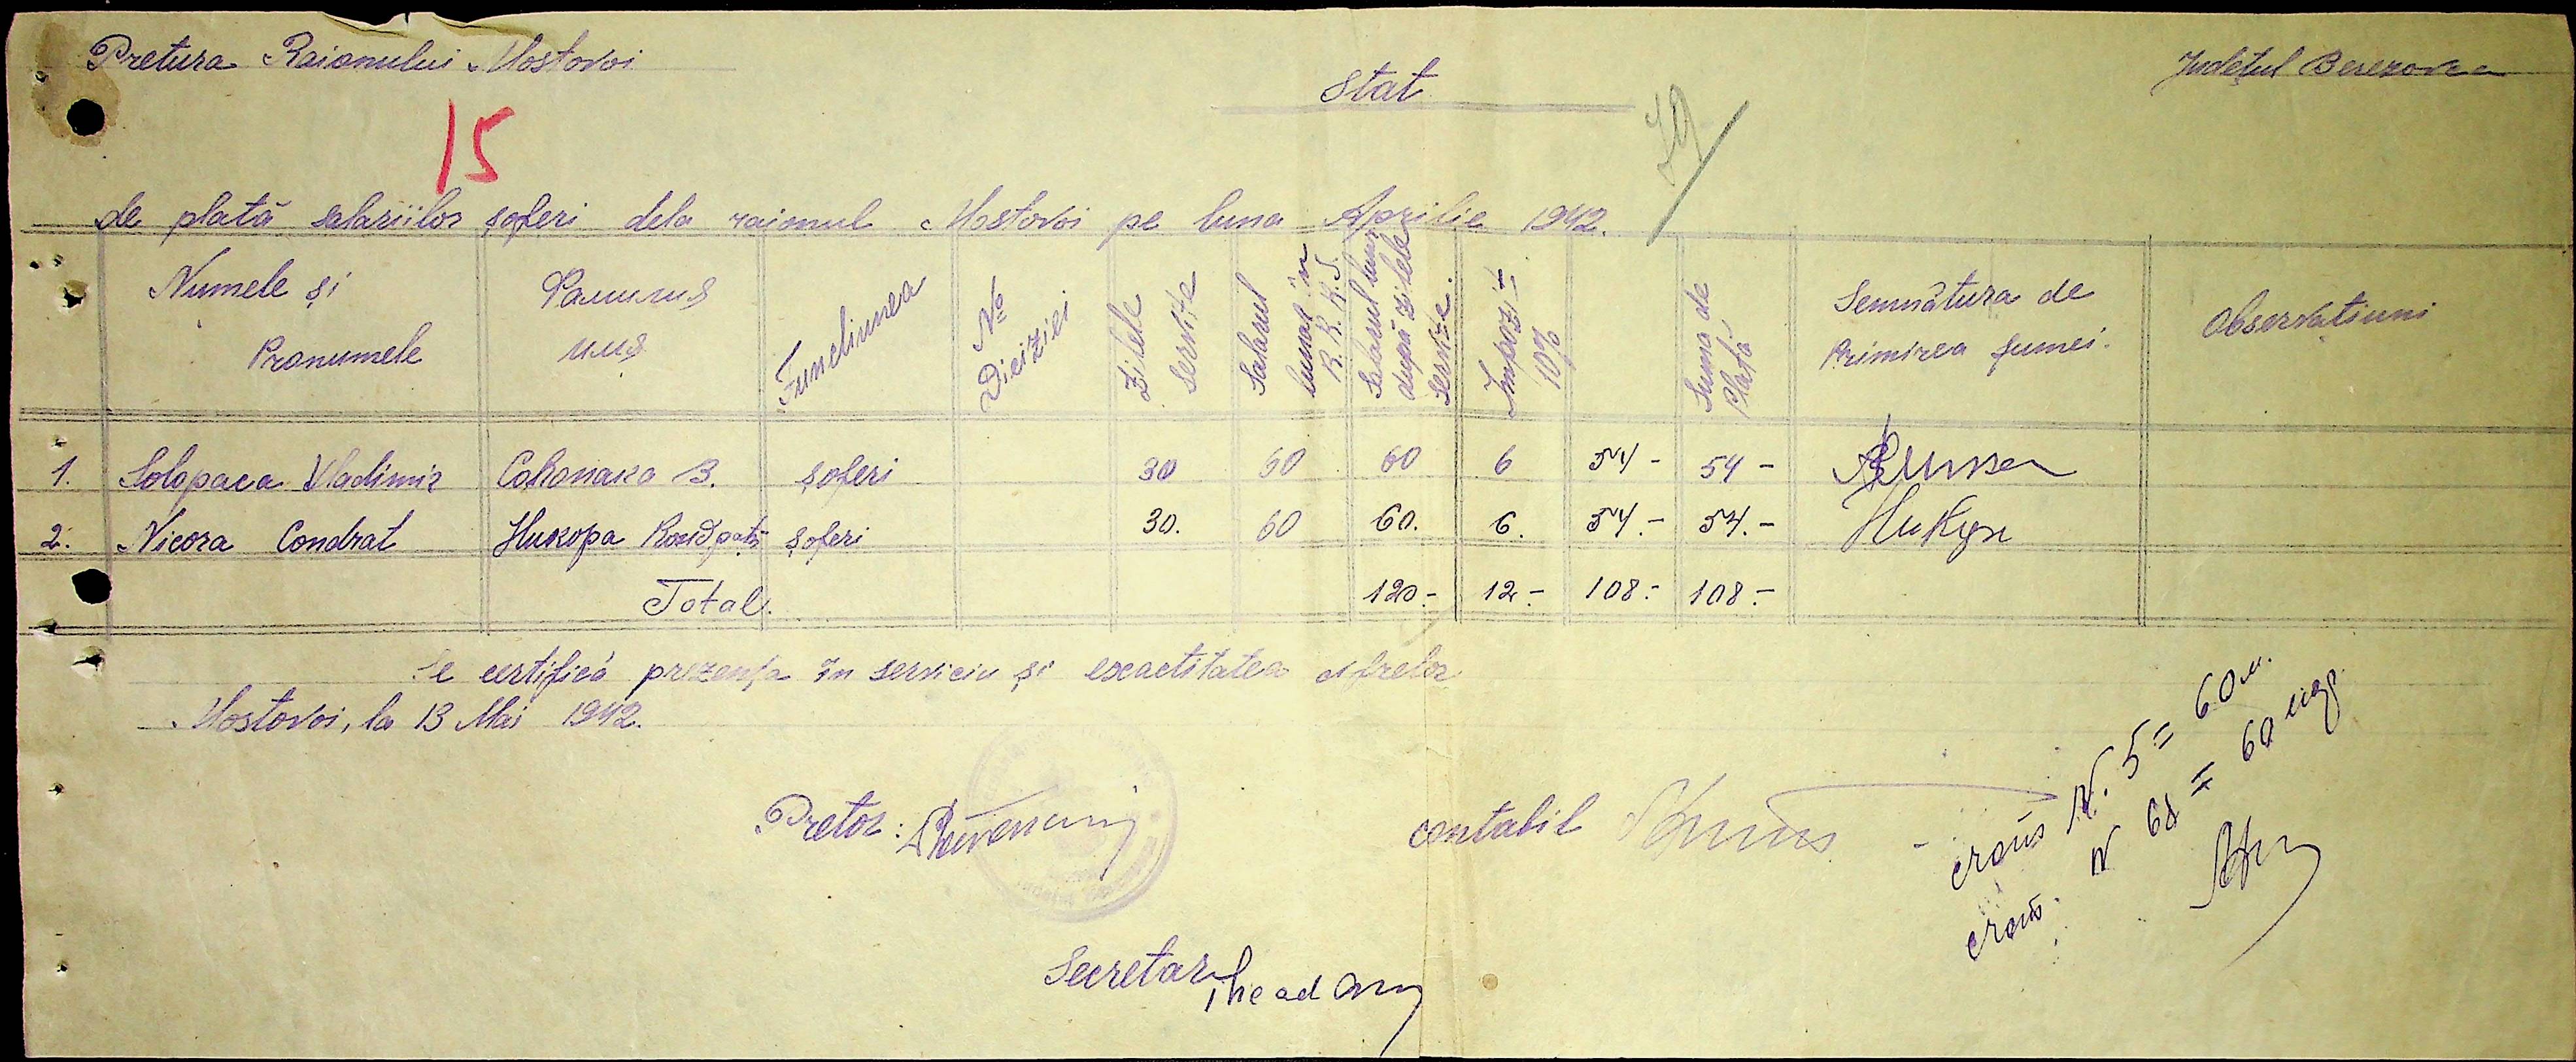 Pretura Raionului Mostovoi
Județul Berezovca
Stat
15
de plată salariilor șoferi dela raionul Mostovoi pe luna Aprilie 1942.
Numele și Pronumele Фамилия имя Funcțiunea № Dieiziei Zilele servite Salarul lunar în R.K.K.S. Salarul lunar după zilele servite. Impozit 10% Suma de plată Semnătura de primirea sumei. Observatiuni
1. Solopaca Vladimir Солопака В. șoferi 30 60 60 6 54- 54-
2. Nicora Condrat Никора Кондрат șoferi 30. 60 60. 6. 54.- 54.-
Total. 120.- 12.- 108.- 108.-
Se certifică prezența în serviciu și exactitatea cifrelor
Mostovoi, la 13 Mai 1942.
Pretor:
contabil
Secretar
N. 5 = 60
N 68 = 60